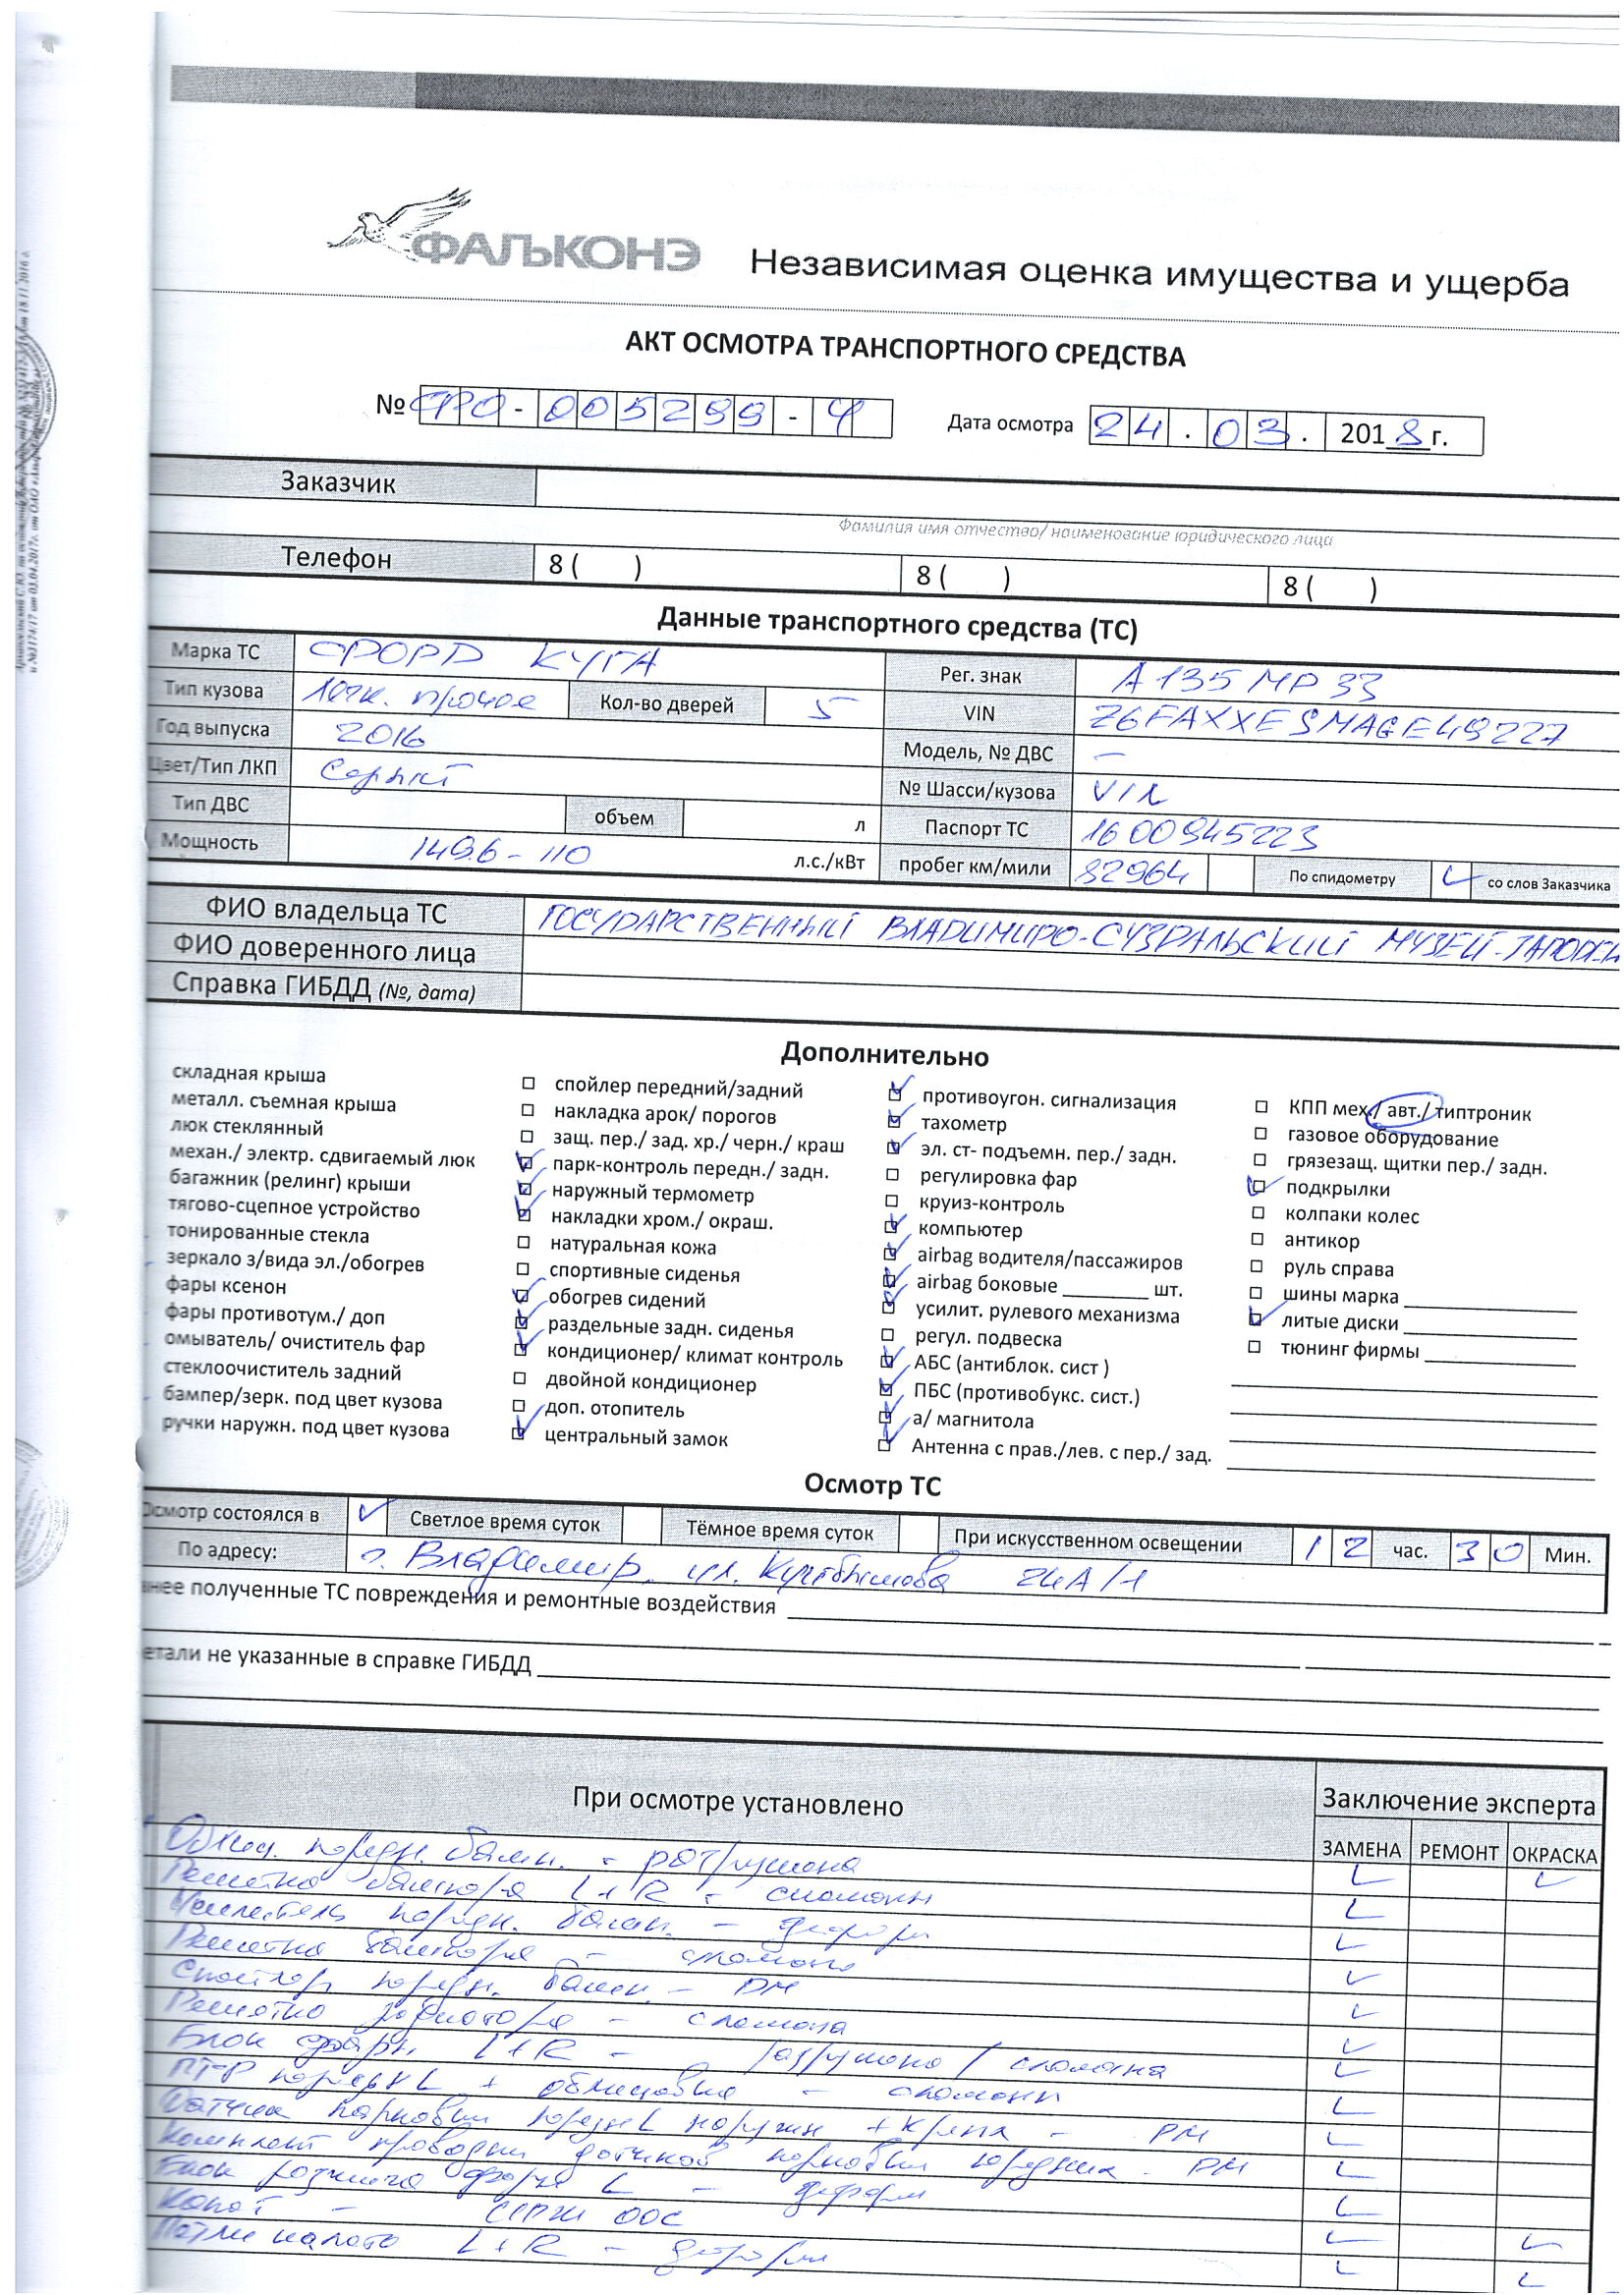 ФАЛЬКОНЭ
Независимая оценка имущества и ущерба
АКТ ОСМОТРА ТРАНСПОРТНОГО СРЕДСТВА
№ ФРО - 005299 - Ч Дата осмотра 24 . 03 . 2018 г.
Заказчик
Фамилия имя отчество/ наименование юридического лица
Телефон 8 ( ) 8 ( ) 8 ( )
Данные транспортного средства (ТС)
Марка ТС ФОРД КУГА Рег. знак А 135 МР 33
Тип кузова Легк. прочее Кол-во дверей 5 VIN Z6FAXXESMAGE49227
Год выпуска 2016 Модель, № ДВС —
Цвет/Тип ЛКП Серый № Шасси/кузова VIN
Тип ДВС объем л Паспорт ТС 16 00 945223
Мощность 149.6 - 110 л.с./кВт пробег км/мили 82964 По спидометру со слов Заказчика
ФИО владельца ТС ГОСУДАРСТВЕННЫЙ ВЛАДИМИРО-СУЗДАЛЬСКИЙ МУЗЕЙ-
ФИО доверенного лица
Справка ГИБДД (№, дата)
Дополнительно
складная крыша
металл. съемная крыша
люк стеклянный
механ./ электр. сдвигаемый люк
багажник (релинг) крыши
тягово-сцепное устройство
тонированные стекла
зеркало з/вида эл./обогрев
фары ксенон
фары противотум./ доп
омыватель/ очиститель фар
стеклоочиститель задний
бампер/зерк. под цвет кузова
ручки наружн. под цвет кузова
спойлер передний/задний
накладка арок/ порогов
защ. пер./ зад. хр./ черн./ краш
парк-контроль передн./ задн.
наружный термометр
накладки хром./ окраш.
натуральная кожа
спортивные сиденья
обогрев сидений
раздельные задн. сиденья
кондиционер/ климат контроль
двойной кондиционер
доп. отопитель
центральный замок
противоугон. сигнализация
тахометр
эл. ст- подъемн. пер./ задн.
регулировка фар
круиз-контроль
компьютер
airbag водителя/пассажиров
airbag боковые ________ шт.
усилит. рулевого механизма
регул. подвеска
АБС (антиблок. сист )
ПБС (противобукс. сист.)
а/ магнитола
Антенна с прав./лев. с пер./ зад.
КПП мех./ авт./ типтроник
газовое оборудование
грязезащ. щитки пер./ задн.
подкрылки
колпаки колес
антикор
руль справа
шины марка
литые диски
тюнинг фирмы
Осмотр ТС
Осмотр состоялся в Светлое время суток Тёмное время суток При искусственном освещении 12 час. 30 Мин.
По адресу: г. Владимир, ул. Куйбышева
нее полученные ТС повреждения и ремонтные воздействия
етали не указанные в справке ГИБДД
При осмотре установлено Заключение эксперта
ЗАМЕНА РЕМОНТ ОКРАСКА
Облиц. передн. бамп. - разрушена
Решетка бампера L+R - сломаны
Усилитель передн. бамп. - деформ
Решетка бампера - сломана
Спойлер передн. бамп. - РМ
Решетка радиатора - сломана
Блок фары L+R - разрушена / сломана
ПТФ передн L + облицовка - сломаны
Датчик парковки передн L наружн + крепл - РМ
Комплект проводки датчиков парковки передних - РМ
Блок розжига фары L - деформ
Капот -
Петли капота L+R - деформ